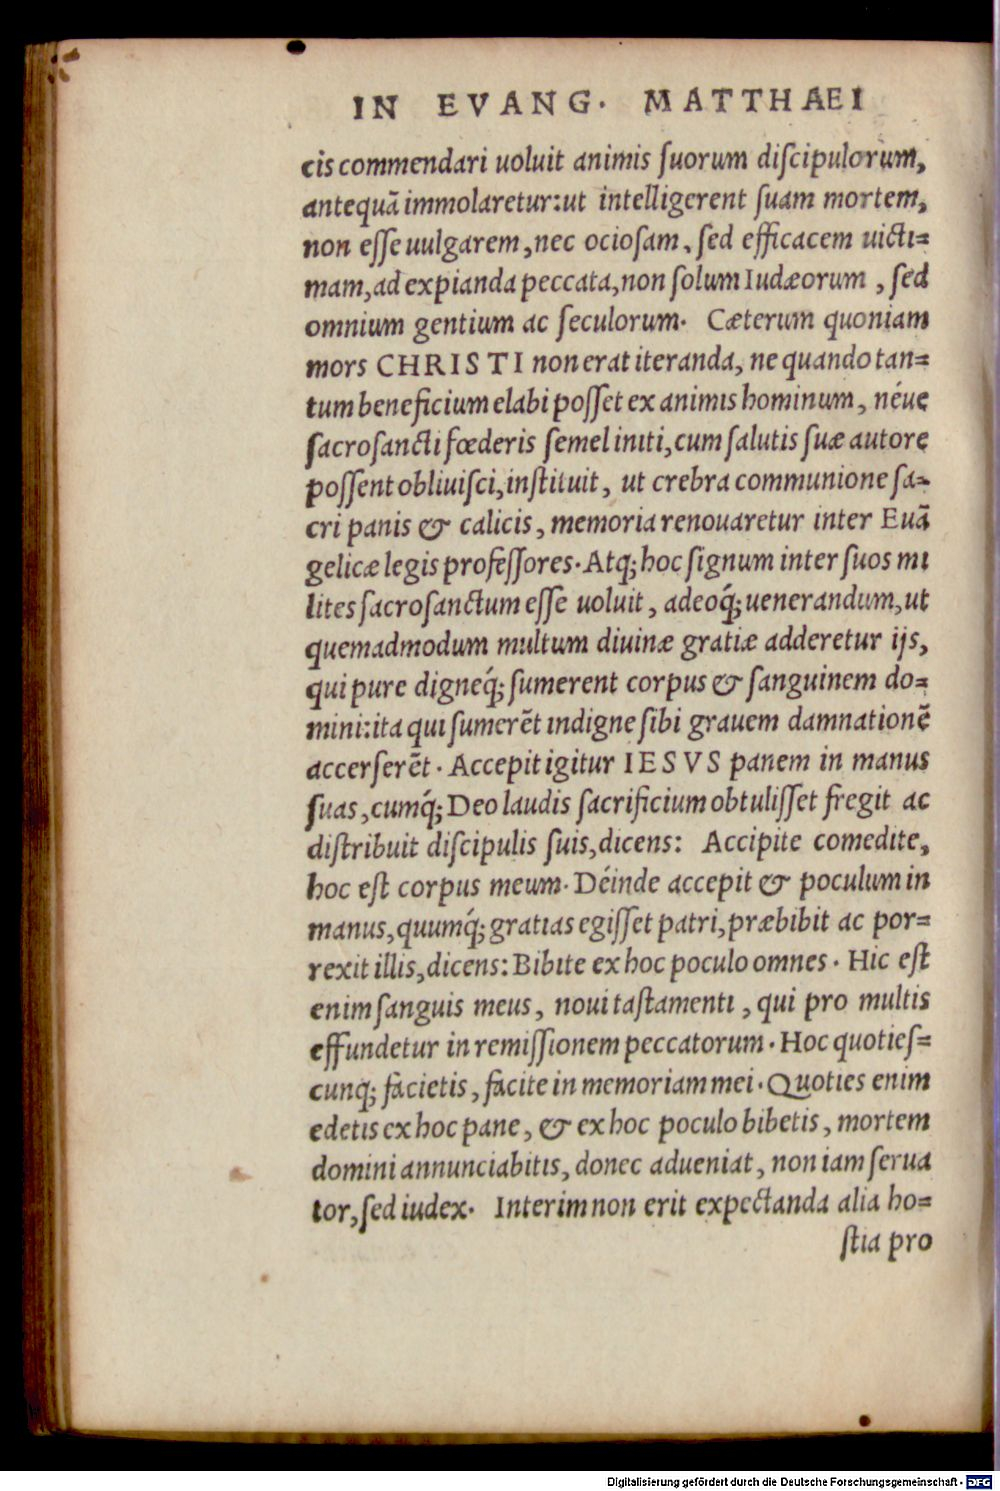 IN EVANG. MATTHAEI
cis commendari uoluit animis ſuorum diſcipulorum,
antequā immolaretur:ut intelligerent ſuam mortem,
non eſſe uulgarem, nec ocioſam, ſed efficacem uicti=
mam, ad expianda peccata, non ſolum Iudæorum, ſed
omnium gentium ac ſeculorum. Cæterum quoniam
mors CHRISTI non erat iteranda, ne quando tan=
tum beneficium elabi poſſet ex animis hominum, néue
ſacroſancti fœderis ſemel initi, cum ſalutis ſuæ autore
poſſent obliuiſci, inſtituit, ut crebra communione ſa=
cri panis & calicis, memoria renouaretur inter Euā
gelicæ legis profeſſores. Atq; hoc ſignum inter ſuos mi
lites ſacroſanctum eſſe uoluit, adeoq́; uenerandum, ut
quemadmodum multum diuinæ gratiæ adderetur ijs,
qui pure digneq́; ſumerent corpus & ſanguinem do=
mini:ita qui ſumerēt indigne ſibi grauem damnationē
accerſerēt. Accepit igitur IESVS panem in manus
ſuas, cumq́; Deo laudis ſacrificium obtuliſſet fregit ac
diſtribuit diſcipulis ſuis, dicens: Accipite comedite,
hoc eſt corpus meum. Déinde accepit & poculum in
manus, quumq́; gratias egiſſet patri, præbibit ac por=
rexit illis, dicens: Bibite ex hoc poculo omnes. Hic eſt
enim ſanguis meus, noui taſtamenti, qui pro multis
effundetur in remiſſionem peccatorum. Hoc quotieſ=
cunq; facietis, facite in memoriam mei. Quoties enim
edetis ex hoc pane, & ex hoc poculo bibetis, mortem
domini annunciabitis, donec adueniat, non iam ſerua
tor, ſed iudex. Interim non erit expectanda alia ho=
ſtia pro
Digitalisierung gefördert durch die Deutsche Forschungsgemeinschaft - DFG